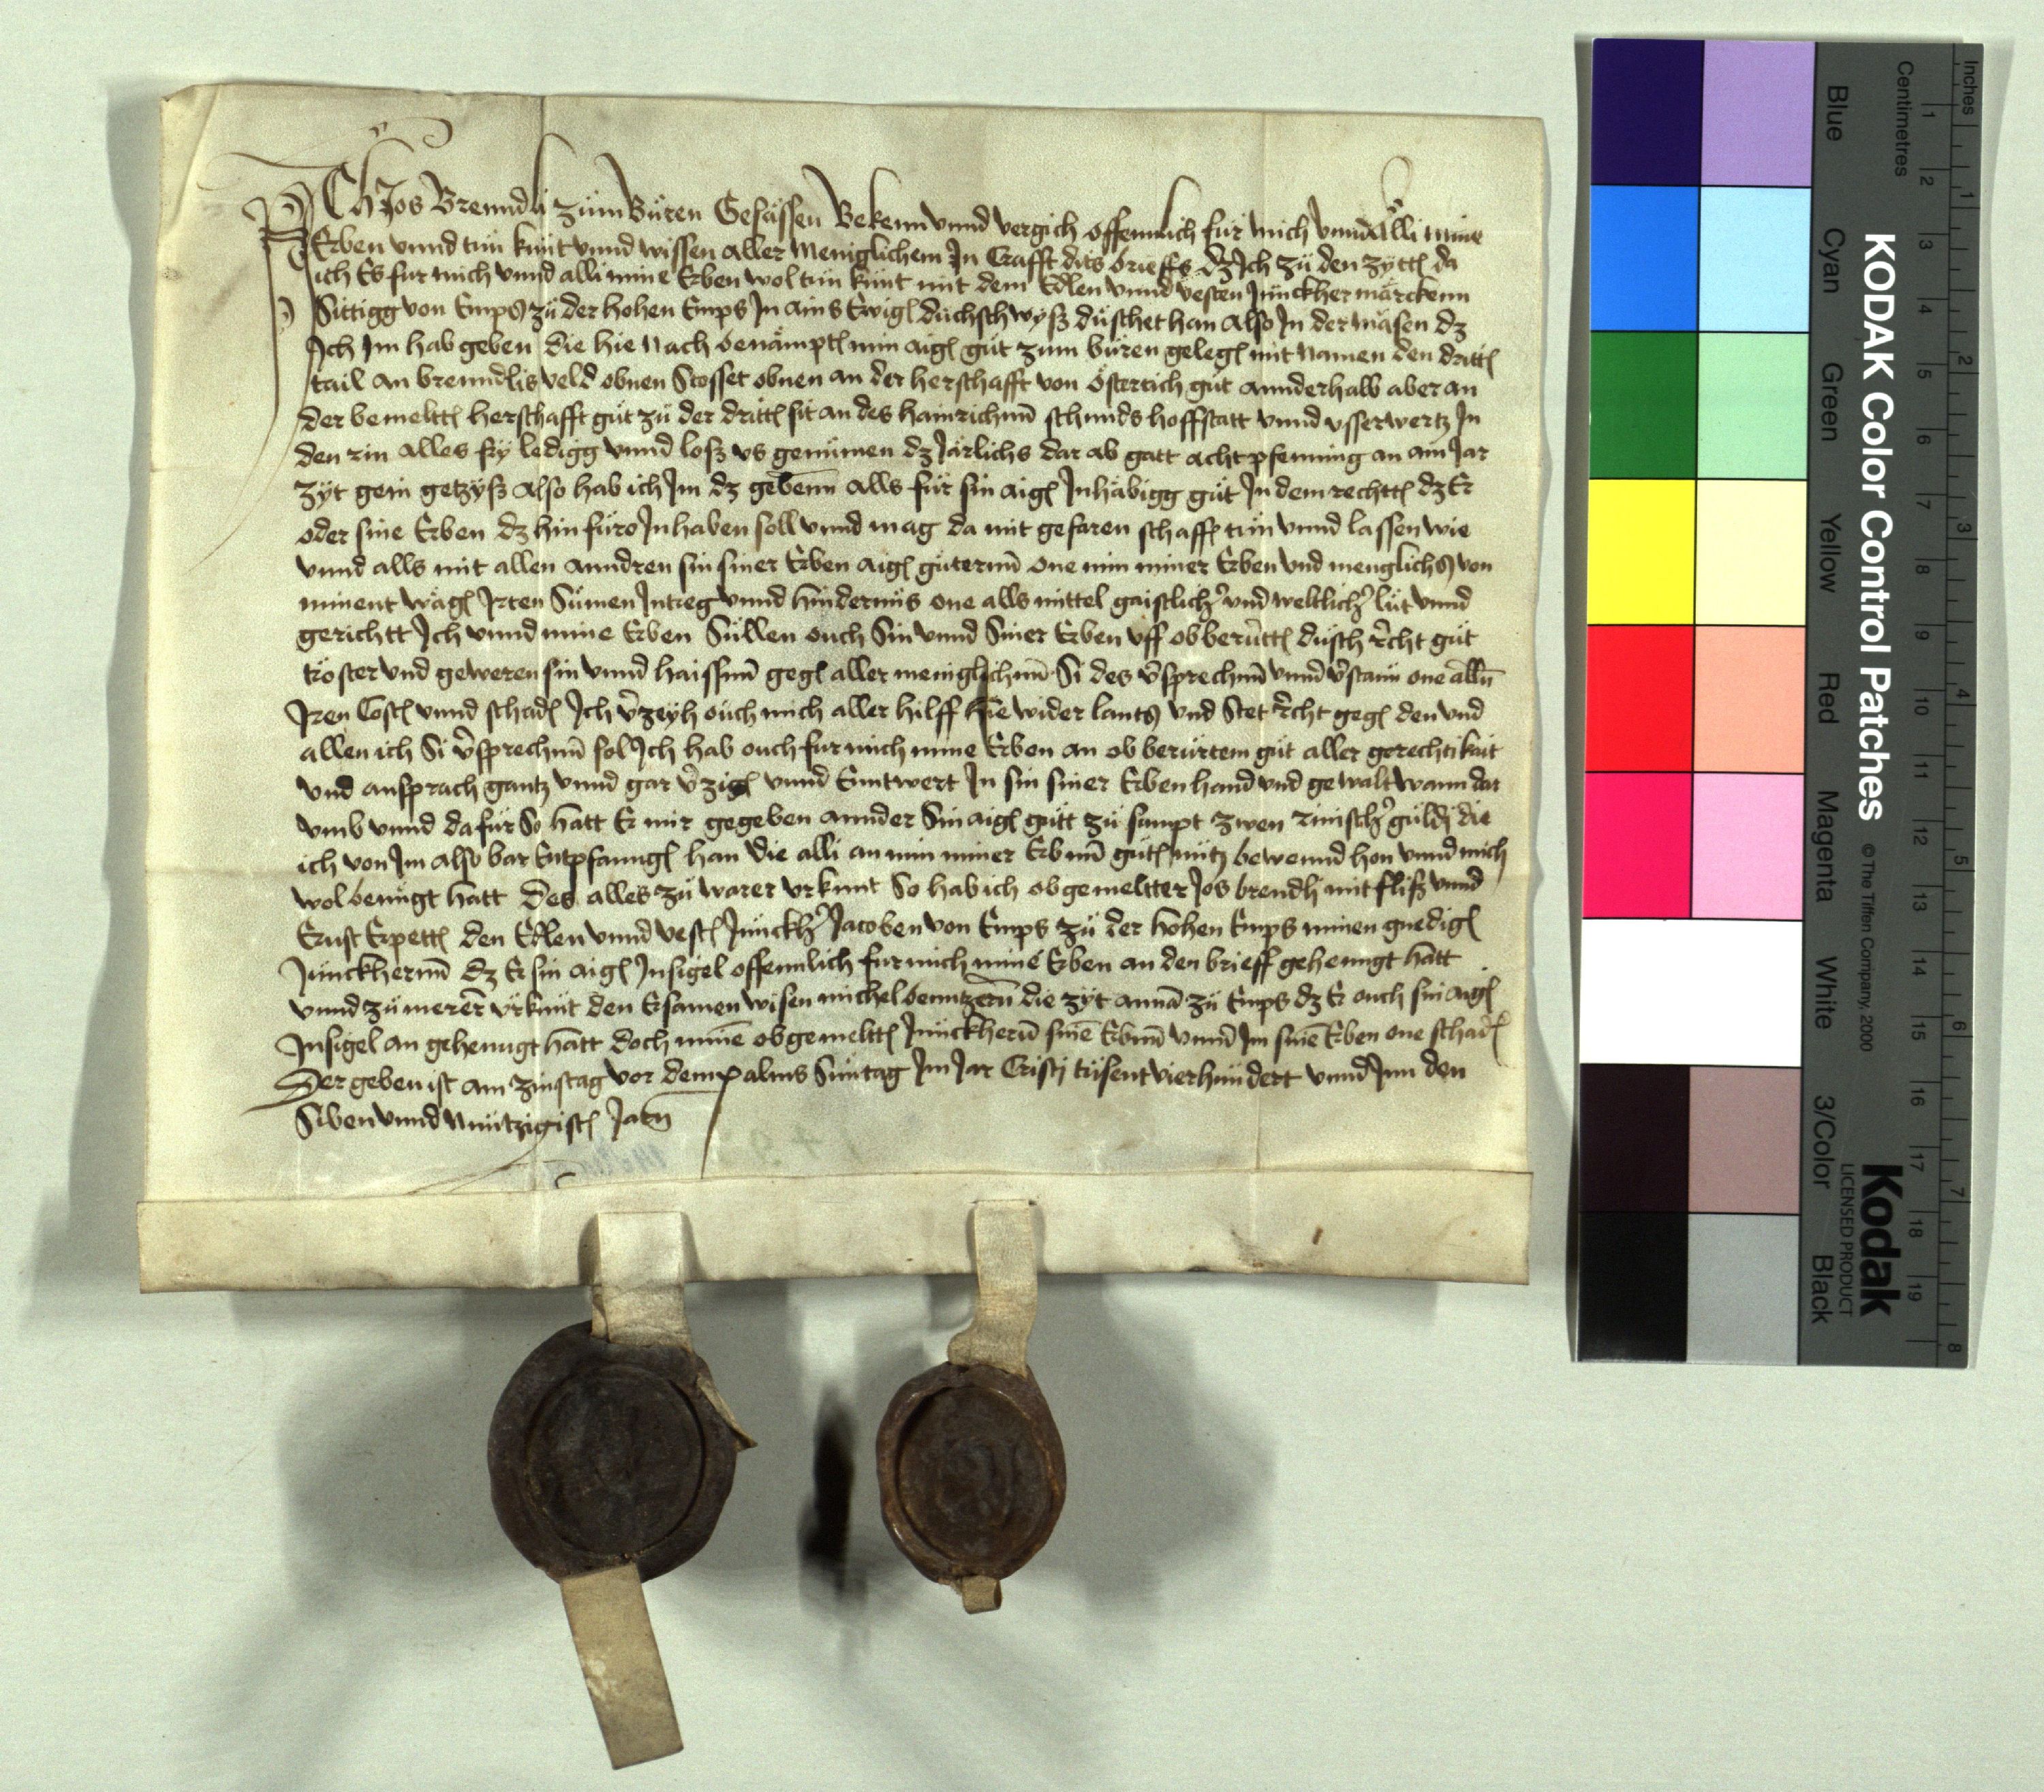 ICh Jos Brenndli zum Büren Gesässen Bekenn vnnd vergich offennlich für mich vnnd Alli mine
Erben vnnd tün künt vnnd wissen aller Meniglichem In Crafft dits brieffs dz Ich zü den zytten da
ich Es fur mich vnnd alli mine Erben wol tün künt mit dem Edlen vnnd vesten Junckher märckenn
Sittigg von Emps zü der hohen Emps In ains Ewigen düschs wyß düschet han Also In der mäsen dz
Ich Im hab geben die hie Nach benämpten min aigen güt zum büren gelegen mit Namen den dritten
tail an brenndlis veld obnen Stosset obnen an der herschafft von österrich güt annderhalb aber an
der bemeltten herschafft güt zü der dritten sit an des hainrichenn schmids hoffstatt vnnd vsserwertz In
den rin alles fry ledigg vnnd loß vs genumen dz Järlichs dar ab gatt acht pfenning an ain Jar
zyt gein getzyß Also hab ich Im dz gebenn alls für sin aigen Inhäbigg güt In dem rechtten dz Er
oder sine Erben dz hin füro Inhaben soll vnnd mag da mit gefaren schaffen tün vnnd lassen wie
vnnd alls mit allen anndren sin siner Erben aigen güternn one min miner Erben vnd menglichs von
minent wägen Irren Sümen Intreg vnnd hindernüs one alls mittel gaistlicher vnd weltlicher lüt vnnd
gerichtt Ich vnnd mine Erben Süllen ouch Sin vnnd Siner Erben vff ob berürtten düsch recht güt
tröster vnd geweren sin vnnd haissenn gegen aller meniglichenn Si des versprechenn vnnd verstann one allen
Iren Costen vnnd schaden Ich verzeyh ouch mich aller hilff hie wider lants vnd Stet recht gegen den vnd
allen ich Si versprechenn sol Ich hab ouch fur mich mine Erben an ob berürtem güt aller gerechtikait
vnd ansprach gantz vnnd gar verzigen vnnd Eintwert In sin siner Erben hand vnd gewalt wann dar
vmb vnnd dafür So hatt Er mir gegeben annder Sin aigen gütt zü sampt zwen rinischer guldi die
ich von Im also bar Entpfanngen han die alli an min miner Erbenn güten nütz bewennd hon vnnd mich
wol benügt hatt Des alles zü warer vrkunt So hab ich obgemeltter Jos brendli mit fliß vnnd
Ernst Erpetten den Edlen vnnd vesten Junckher Jacoben von Emps zü der hohen Emps minen gnedigen
Junckherrnn dz Er sin aigen Insigel offennlich fur mich mine Erben an den brieff gehenngt hatt
vnnd zü merer vrkunt den Ersamen wisen michel benntzern die zyt aman zü Emps dz Er ouch sin aigen
Insigel an gehenngt hatt doch minen obgemeltten Junckhernn sinen Erbenn vnnd Im sinen Erben one schaden
Der geben ist am zinstag vor dem palms Sünntag Im Jar Cristi tusent vierhundert vnnd Imm den
Siben vnnd Nuntzigisten Jarenn
KODAK Color Control Patches © The Tiffen Company, 2000 Kodak
LICENSED PRODUCT
Blue Cyan Green Yellow Red Magenta White 3/Color Black
Inches 1 2 3 4 5 6 7 8
Centimetres 1 2 3 4 5 6 7 8 9 10 11 12 13 14 15 16 17 18 19